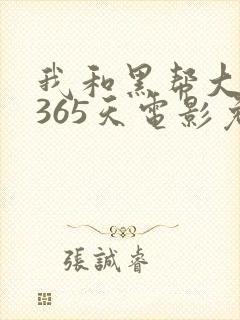 我和黑帮大
365天电影
張誠睿